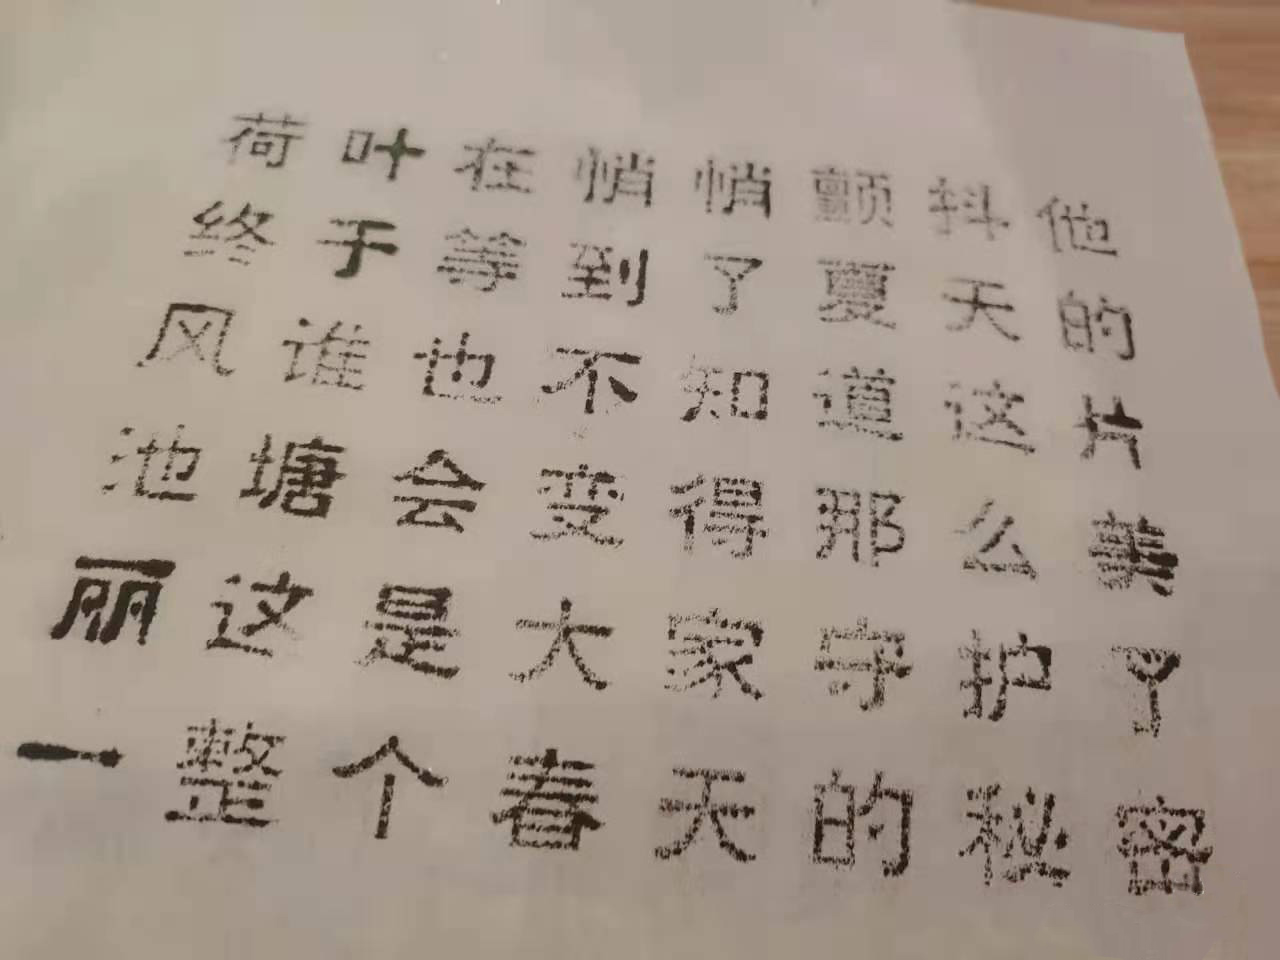 荷叶在悄悄颤抖他
终于等到了夏天的
风谁也不知道这片
池塘会变得那么美
丽这是大家守护了
一整个春天的秘密